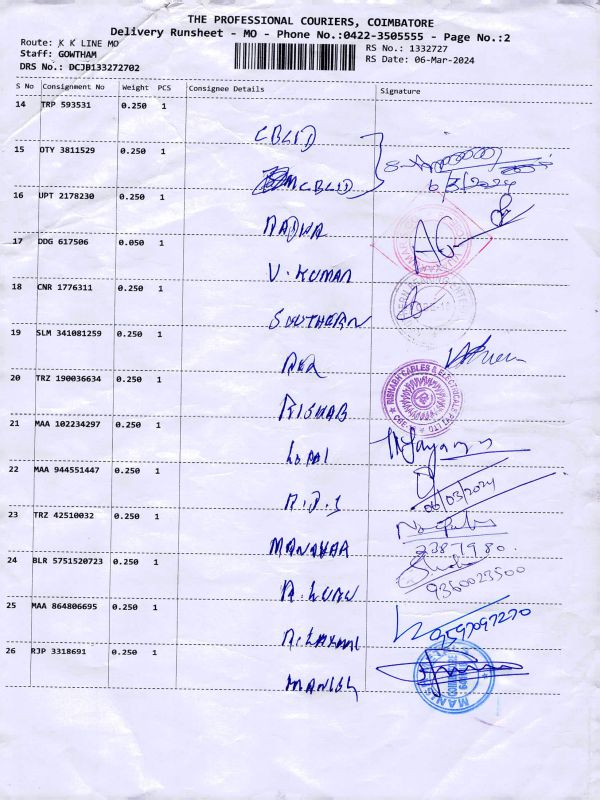 THE PROFESSIONAL COURIERS, COIMBATORE
Delivery Runsheet - MO - Phone No.:0422-3505555 - Page No.:2
Route: K K LINE MO
Staff: GOWTHAM
DRS No.: DCJB133272702
RS No.: 1332727
RS Date: 06-Mar-2024
S No Consignment No Weight PCS Consignee Details Signature
14 TRP 593531 0.250 1
CBLID
15 DTY 3811529 0.250 1
CBLID
6/3/2024
16 UPT 2178230 0.250 1
17 DDG 617506 0.050 1
V. KUMAR
18 CNR 1776311 0.250 1
SOUTHERN
19 SLM 341081259 0.250 1
20 TRZ 190036634 0.250 1
RISHAB
RISHABH CABLES & ELECTRICALS PVT LTD
21 MAA 102234297 0.250 1
22 MAA 944551447 0.250 1
06/03/2024
23 TRZ 42510032 0.250 1
MANOHAR
24 BLR 5751520723 0.250 1
9360023500
25 MAA 864806695 0.250 1
26 RJP 3318691 0.250 1
MANISH